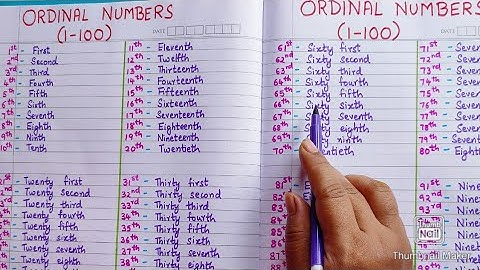 ORDINAL NUMBERS
(1-100)
DATE
1st - First
2nd - Second
3rd - Third
4th - Fourth
5th - Fifth
6th - Sixth
7th - Seventh
8th - Eighth
9th - Ninth
10th - Tenth
11th - Eleventh
12th - Twelfth
13th - Thirteenth
14th - Fourteenth
15th - Fifteenth
16th - Sixteenth
17th - Seventeenth
18th - Eighteenth
19th - Nineteenth
20th - Twentieth
Twenty first
Twenty second
Twenty third
Twenty fourth
Twenty fifth
Twenty sixth
Twenty seventh
Twenty eighth
31st - Thirty first
32nd - Thirty second
33rd - Thirty third
34th - Thirty fourth
35th - Thirty fifth
36th - Thirty sixth
37th - Thirty seventh
38th - Thirty eighth
ORDINAL NUMBERS
(1-100)
DATE
61st - Sixty first
62nd - Sixty second
63rd - Sixty third
64th - Sixty fourth
65th - Sixty fifth
66th - Sixty sixth
67th - seventh
68th - eighth
69th - ninth
70th
71st - Seven
72nd - Seve
73rd - Seve
74th - Seve
75th - Seve
76th - Seve
77th - Seve
78th - Seve
79th - Seve
80th - Eigh
81st
82nd
83rd
84th
91st - Nine
92nd - Nine
93rd
Thumb
Nail
Thumbnail Maker